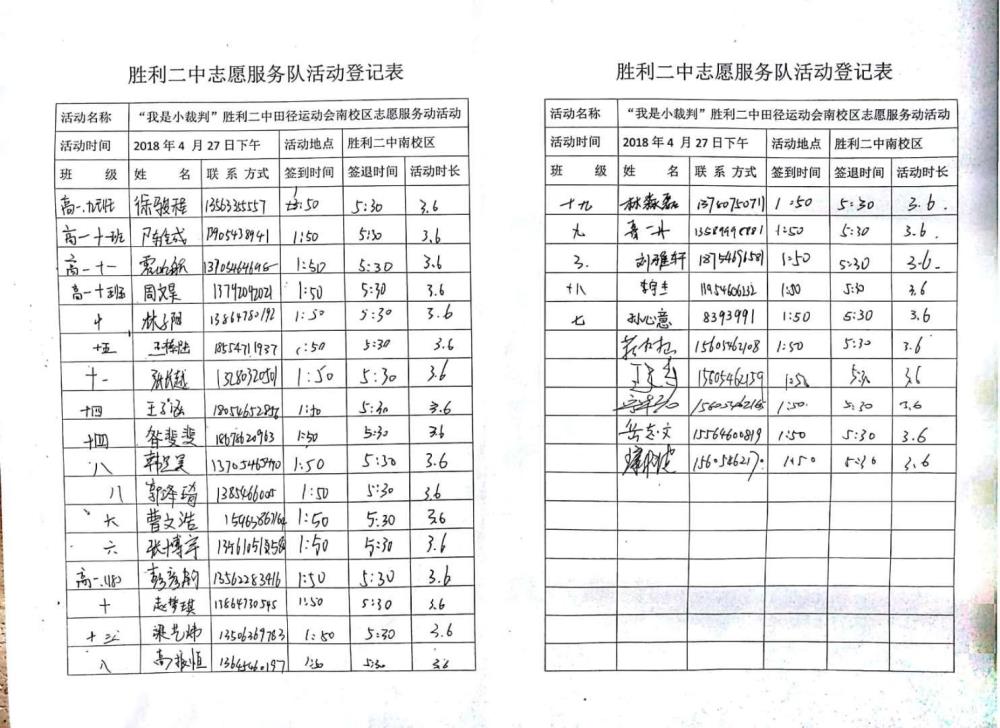 胜利二中志愿服务队活动登记表
活动名称 “我是小裁判”胜利二中田径运动会南校区志愿服务动活动
活动时间 2018 年 4 月 27 日下午 活动地点 胜利二中南校区
班 级 姓 名 联 系 方式 签到时间 签退时间 活动时长
高一.九班 徐敬程 13563285557 1:50 5:30 3.6
高一十班 1:50 5:30 3.6
高一十一 1:50 5:30 3.6
高一十三班 周文昊 13792092021 1:50 5:30 3.6
十 林子阳 13864780192 1:50 5:30 3.6
十五 18554711937 1:50 5:30 3.6
十一 张长越 1:50 5:30 3.6
十四 王子涵 1:50 5:30 3.6
十四 昝斐斐 18678620963 1:50 5:30 3.6
八 韩昱昊 1:50 5:30 3.6
八 郭泽琦 1:50 5:30 3.6
六 曹文浩 1:50 5:30 3.6
六 张博宇 1:50 5:30 3.6
高一. 彭彦韵 13562283416 1:50 5:30 3.6
十 赵梦琪 13864730545 1:50 5:30 3.6
十三 梁艺炜 13506369783 1:50 5:30 3.6
八 高振恒 1:50 5:30 3.6
胜利二中志愿服务队活动登记表
活动名称 “我是小裁判”胜利二中田径运动会南校区志愿服务动活动
活动时间 2018 年 4 月 27 日下午 活动地点 胜利二中南校区
班 级 姓 名 联 系 方式 签到时间 签退时间 活动时长
十九 林淼磊 13780750711 1:50 5:30 3.6.
九 1:50 5:30 3.6.
三. 刘雅轩 1:50 5:30 3.6.
十八 李宇杰 1:50 5:30 3.6
七 孙心意 8393991 1:50 5:30 3.6
15605462108 1:50 5:30 3.6
15605462159 1:50 5:30 3.6
1:50. 5:30 3.6
岳志文 15564600819 1:50 5:30 3.6
1:50 5:30 3.6